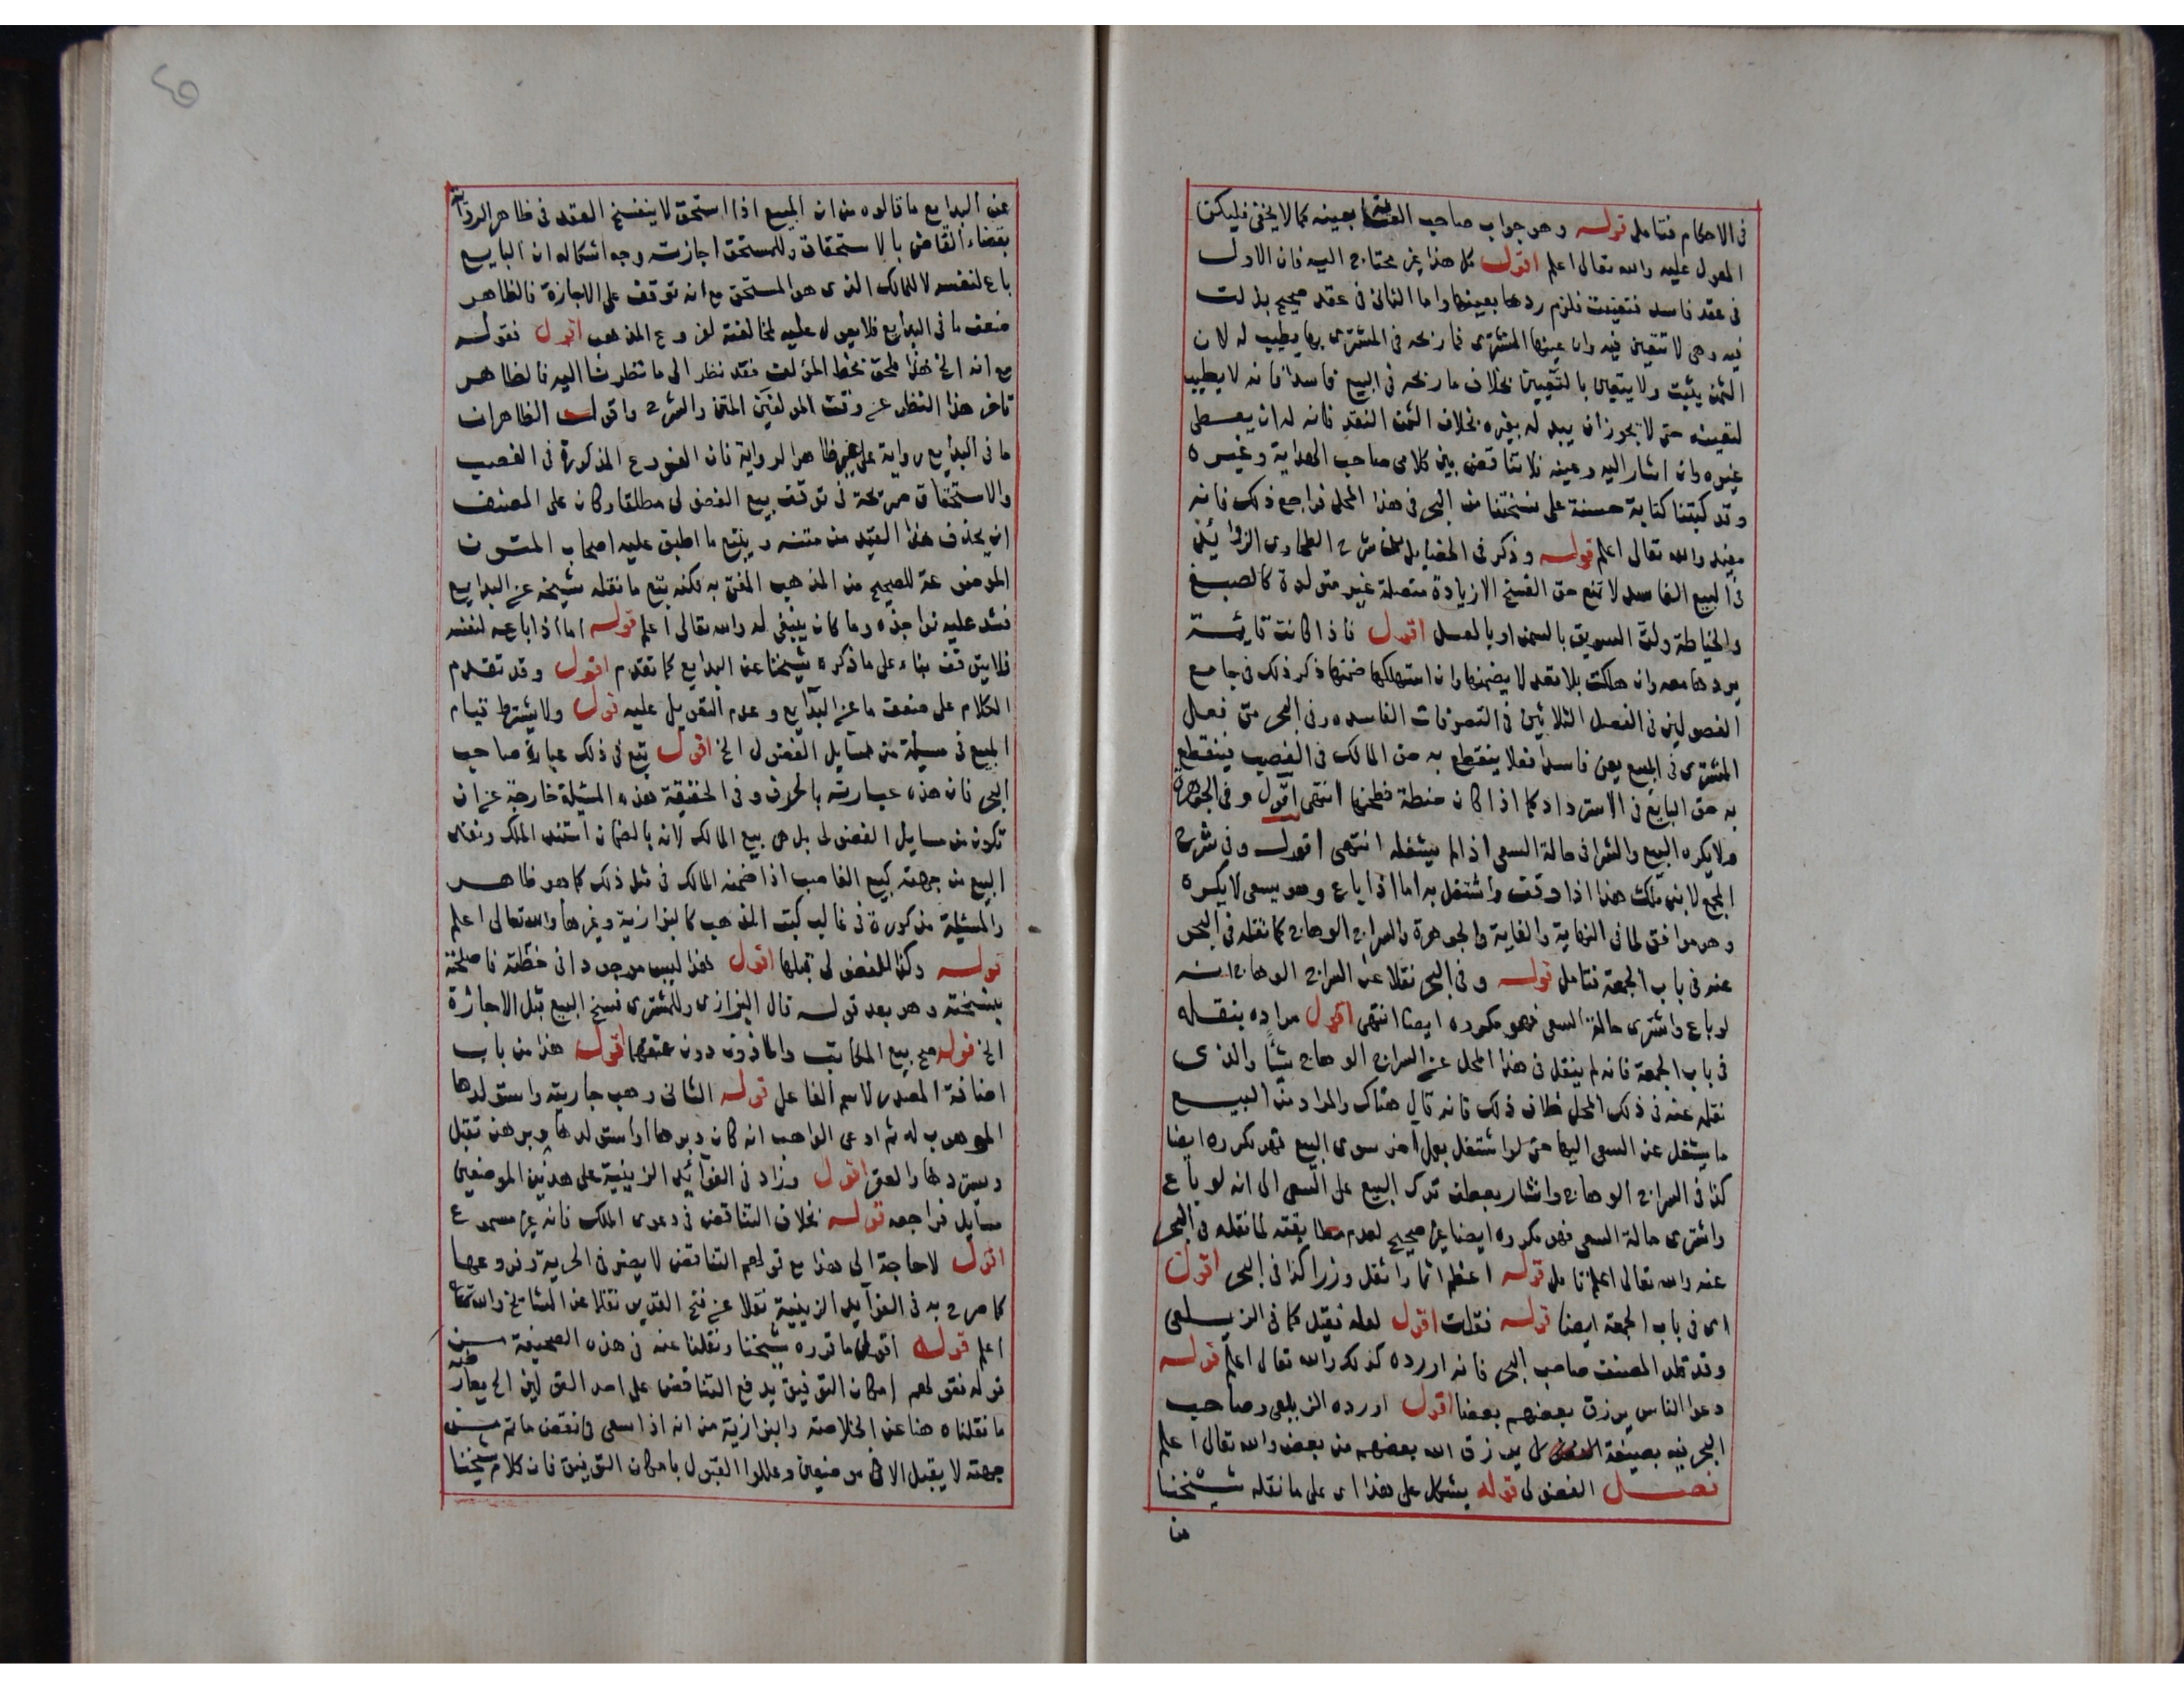 في الاحكام فتامل قوله وهو جواب صاحب العناية بعينه كما لا يخفى فليكن
المعول عليه والله تعالى اعلم اقول كل هذا غير محتاج اليه فان الاول
في عقد فاسد فتعينت فلزم ردها بعينها واما الثاني في عقد صحيح بدلت
فيه وهي لا تتعين فيه وان عينها المشتري فما ربحه في المشتري بها يطيب له لان
الثمن يثبت ولا يتعين بالتعيين بخلاف ما ربحه في البيع فاسدا فانه لا يطيب
لتعينه حتى لا يجوز ان يبدله بغيره بخلاف الثمن النقد فانه له ان يعطى
غيره وان اشار اليه وعينه فلا تناقض بين كلامي صاحب الهداية وغيره
وقد كتبنا كتابة حسنة على نسختنا من البحر في هذا المحل فراجع ذلك فانه
مفيد والله تعالى اعلم قوله وذكر في الحقايق من شرح الطحاوي الزوايد
في البيع الفاسد لا تمنع حق الفسخ الا زيادة متصلة غير متولدة كالصبغ
والخياطة ولت السويق بالسمن او بالعسل اقول فاذا كانت قايمة
يردها معه وان هلكت بلا تعد لا يضمنها وان استهلكها ضمنها ذكر ذلك في جامع
الفصولين في الفصل الثلاثين في التصرفات الفاسده وفي البحر متى فعل
المشتري في المبيع بيعا فاسدا فعلا ينقطع به حق المالك في الغصب فينقطع
به حق البايع في الاسترداد كما اذا كان حنطة فطحنها انتهى اقول وفي الجوهرة
ولا يكره البيع والشرا في حالة السعي اذا لم يشغله انتهى اقول وفي شرح
المجمع لابن ملك هذا اذا وقف واشتغل به اما اذا باع وهو يسعى لا يكره
وهو موافق لما في النهاية والغاية والجوهرة والسراج الوهاج كما نقله في البحر
عنه في باب الجمعة فتامل قوله وفي البحر نقلا عن السراج الوهاج انه
لو باع واشترى حالة السعي فهو مكروه ايضا انتهى اقول مراده بنقله
في باب الجمعة فانه لم ينقل في هذا المحل عن السراج الوهاج شيئا والذى
نقله عنه في ذلك المحل خلاف ذلك فانه قال هناك والمراد من البيع
ما يشغل عن السعي اليها حتى لو اشتغل بعمل اخر سوى البيع فهو مكروه ايضا
كذا في السراج الوهاج واشار بعطف ترك البيع على السعي الى انه لو باع
واشترى حالة السعي فهو مكروه ايضا غير صحيح لعدم مطابقته لما نقله في البحر
عنه والله تعالى اعلم فتامل قوله اعظم اثما واثقل وزرا كذا في البحر اقول
اى في باب الجمعة ايضا قوله نقلت اقول لعله نقيل كما في الزيلعي
وقد قلد المصنف صاحب البحر فانه اورده كذلك والله تعالى اعلم قوله
دعوا الناس يرزق بعضهم بعضا اقول اورده الزيلعي وصاحب
البحر فيه بصيغة يرزق الله بعضهم من بعض والله تعالى اعلم
فصل الفضولي قوله يشكل على هذا اى على ما نقله شيخنا
من
عن البدايع ما قالوه من ان المبيع اذا استحق لا ينفسخ العقد في ظاهر الرواية
بقضاء القاضي بالاستحقاق وللمستحق اجازته وجه اشكاله ان البايع
باع لنفسه لا للمالك الذى هو المستحق مع انه توقف على الاجازة فالظاهر
ضعف ما في البدايع فلا يعول عليه لمخالفته لفروع المذهب اقول فقوله
مع انه الخ هذا ملحق بخط المؤلف فقد نظر الى ما نظرنا اليه فالظاهر
تاخر هذا النظر عن وقت المولفين المتن والشرح واقول الظاهر ان
ما في البدايع رواية على غير ظاهر الرواية فان الفروع المذكورة في الغصب
والاستحقاق صريحة في توقف بيع الفضولي مطلقا وكان على المصنف
ان يحذف هذا القيد من متنه ويتبع ما اطبق عليه اصحاب المتون
الموضوعة للصحيح من المذهب المفتى به لكنه تبع ما نقله شيخه عن البدايع
فشد عليه نواجذه وما كان ينبغي له والله تعالى اعلم قوله اما اذا باعه لنفسه
فلا يتوقف بناء على ما ذكره شيخنا عن البدايع كما تقدم اقول وقد تقدم
الكلام على ضعف ما عن البدايع وعدم التعويل عليه قوله ولا يشترط قيام
المبيع في مسيلة من مسايل الفضول الخ اقول تبع في ذلك عبارة صاحب
البحر فان هذه عبارته بالحرف وفي الحقيقة هذه المسيلة خارجة عن ان
تكون من مسايل الفضولي بل هي بيع المالك لانه بالضمان استند الملك ونفاذ
البيع من جهته كبيع الغاصب اذا ضمنه المالك في مثل ذلك كما هو ظاهر
والمسيلة مذكورة في غالب كتب المذهب كالبزازية وغيرها والله تعالى اعلم
قوله وكذا للفضولي قبلها اقول هذا ليس موجود اني خطته فاصلحته
بنسخته وهو بعد قوله قال البزازى وللمشترى فسخ البيع قبل الاجازة
الخ قوله صح بيع المكاتب والماذون دون عتقهما اقول هذا من باب
اضافة المصدر لاسم الفاعل قوله الثاني وهب جاريته واستولدها
الموهوب له ثم ادعى الواهب انه كان دبرها او استولدها وبرهن تقبل
ويستردها والعقر اقول وزاد في الفوائد الزينية على هذين الموضعين
مسايل فراجعه قوله بخلاف التناقض في دعوى الملك فانه غير مسموع
اقول لا حاجة الى هذا مع قولهم التناقض لا يضر في الحرية وفروعها
كما صرح به في الفوايد الزينية نقلا عن فتح القدير نقلا عن المشايخ والله تعالى
اعلم قوله اقول ما قرره شيخنا ونقلنا عنه في هذه الصحيفة من
قوله فقولهم امكان التوفيق يدفع التناقض على احد القولين الخ يعارضه
ما نقلناه هنا عن الخلاصة والبزازية من انه اذا سعى في نقض ما تم من
جهته لا يقبل الا في موضعين وعللوا القبول بامكان التوفيق فان كلام شيخنا